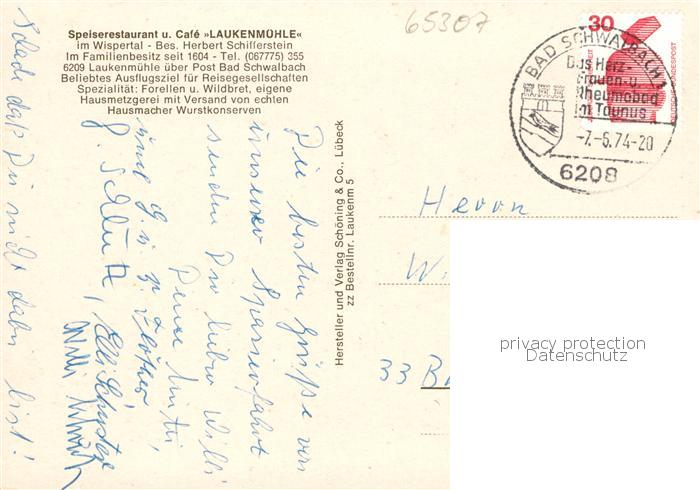 Speiserestaurant u. Café »LAUKENMÜHLE«
im Wispertal - Bes. Herbert Schifferstein
Im Familienbesitz seit 1604 - Tel. (067775) 355
6209 Laukenmühle über Post Bad Schwalbach
Beliebtes Ausflugsziel für Reisegesellschaften
Spezialität: Forellen u. Wildbret, eigene
Hausmetzgerei mit Versand von echten
Hausmacher Wurstkonserven
65307
30
DEUTSCHE BUNDESPOST
BAD SCHWALBACH 1
Das Herz-
Frauen-u.
Rheumabad
im Taunus
-7.-5.74-20
6208
Die besten Grüße von
unserer Spazierfahrt
senden Dir lieber Willi
Deine
und
Schade daß Du nicht dabei bist!
Hersteller und Verlag Schöning & Co., Lübeck
zz Bestellnr. Laukenm 5
Herrn
W
33 B
privacy protection
Datenschutz